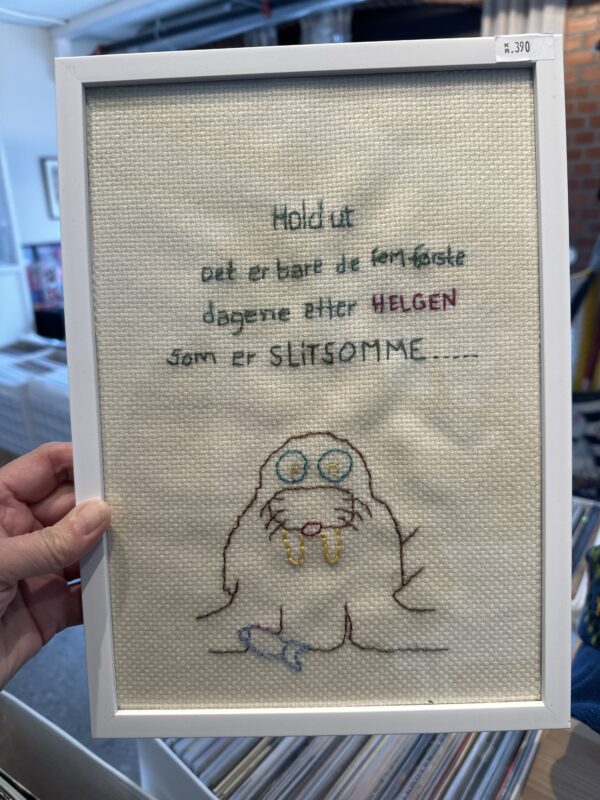 KR.390
Hold ut
Det er bare de fem første
dagene etter HELGEN
som er SLiTSOMME.....